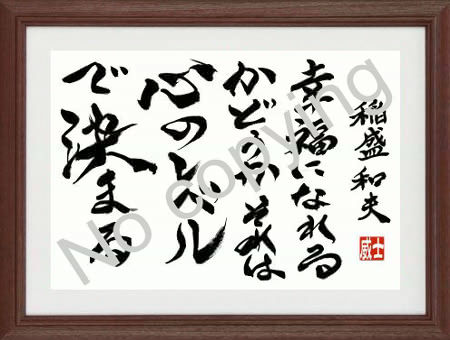 稲盛和夫
幸福になれる
かどうかそれは
心のレベル
で決まる
No copying